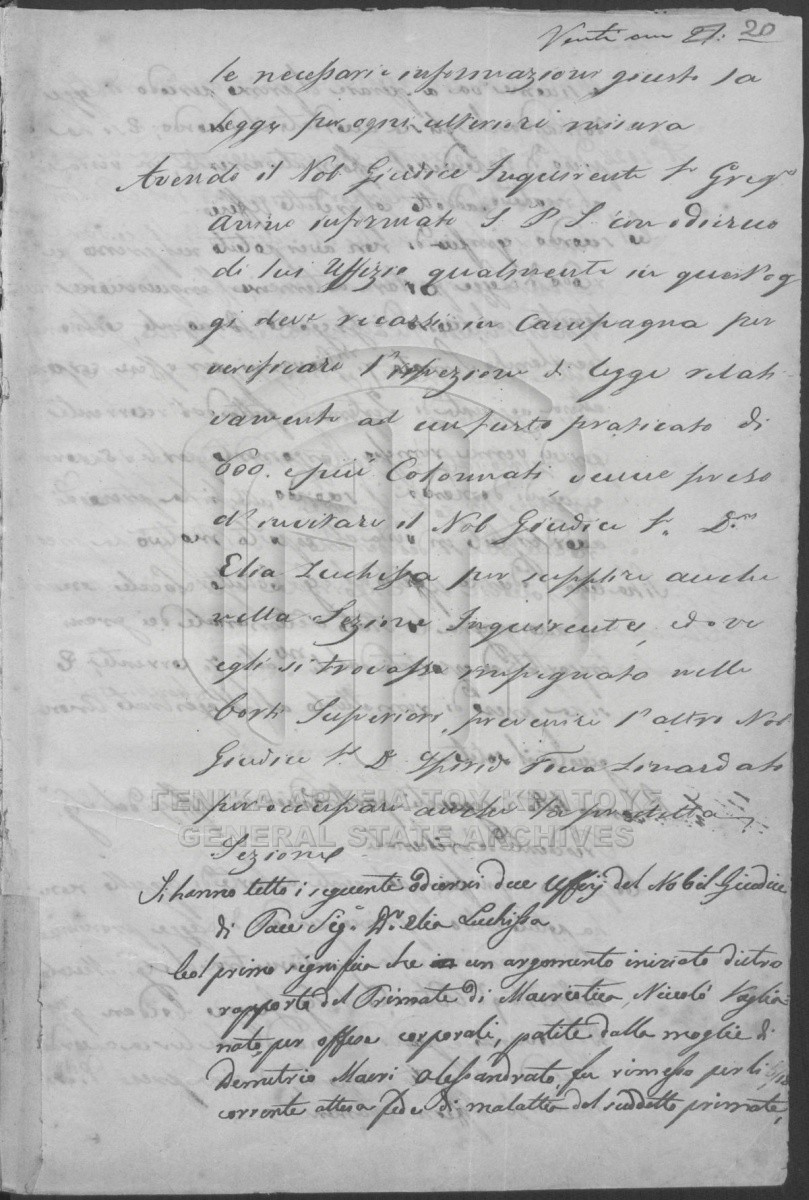 Venti un 21: 20
le necessarie informazioni giusta la
Legge per ogni ulteriori misura
Avendo il Nob Giudice Inquirente Sr Greg.o
Anino informato S P S con odierno
di lui Uffizio qualmente in quest'og
gi deve recarsi in Campagna per
verificare l'ispezione di legge relati
vamente ad un furto praticato di
600. e più Colonnati, venne preso
d'invitare il Nob Giudice Sr. Dn
Elia Luchissa per supplire anche
nella Sezione Inquirente, e dove
egli si trovasse impegnato nelle
Corti Superiori, prevenire l'altro Nob
Giudice Sr. D Foca Linardato
per occupare anche la predetta
Sezione
Si hanno letto i seguente odierni due Uffizj del Nobil Giudice
di Pace Sigr. Dn. Elia Luchissa
Col primo significa che in un argomento iniziato dietro
rapporto del Primate di Niccolò Vaglia=
nato, per offese corporali, patite dalla moglie di
Demetrio Macri Alessandrato, fu rimesso per li
corrente attesa fede di malattia del suddetto primate,
ΓΕΝΙΚΑ ΑΡΧΕΙΑ ΤΟΥ ΚΡΑΤΟΥΣ
GENERAL STATE ARCHIVES